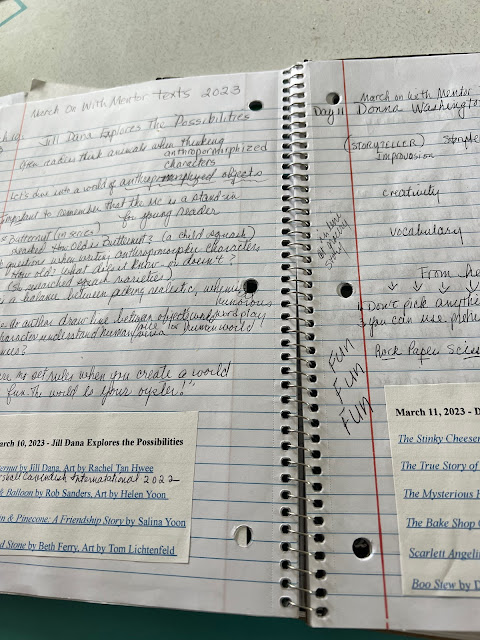 March On With Mentor Texts 2023
Jill Dana Explores the Possibilities
readers think animals when thinking
anthropomorphized
characters
Let's dive into a world of objects
important to remember that the MC is a stand-in
for young reader
Butternut (in series)
old is Butternut? (a child squash)
when writing anthropomorphic characters
year old's what does it know or doesn't?
(So researched squash varieties)
is a balance between being realistic, whimsical
humorous
do author draw line between object word play
character understand human world
set rules when you create a world
fun. The world is your oyster!"
arch 10, 2023 - Jill Dana Explores the Possibilities
ernut by Jill Dana, Art by Rachel Tan Hwee
shall Cavendish International 2022
& Balloon by Rob Sanders, Art by Helen Yoon
in & Pinecone: A Friendship Story by Salina Yoon
d Stone by Beth Ferry, Art by Tom Lichtenfeld
Day 11
March on with Mentor
Donna Washington
(STORYTELLER)
Improvasion
creativity
vocabulary
From
Don't pick anything
you can use
Rock Paper Sciss
FUN
FUN
FUN
March 11, 2023 - D
The Stinky Cheesem
The True Story of
The Mysterious
The Bake Shop
Scarlett Angelin
Boo Stew by D